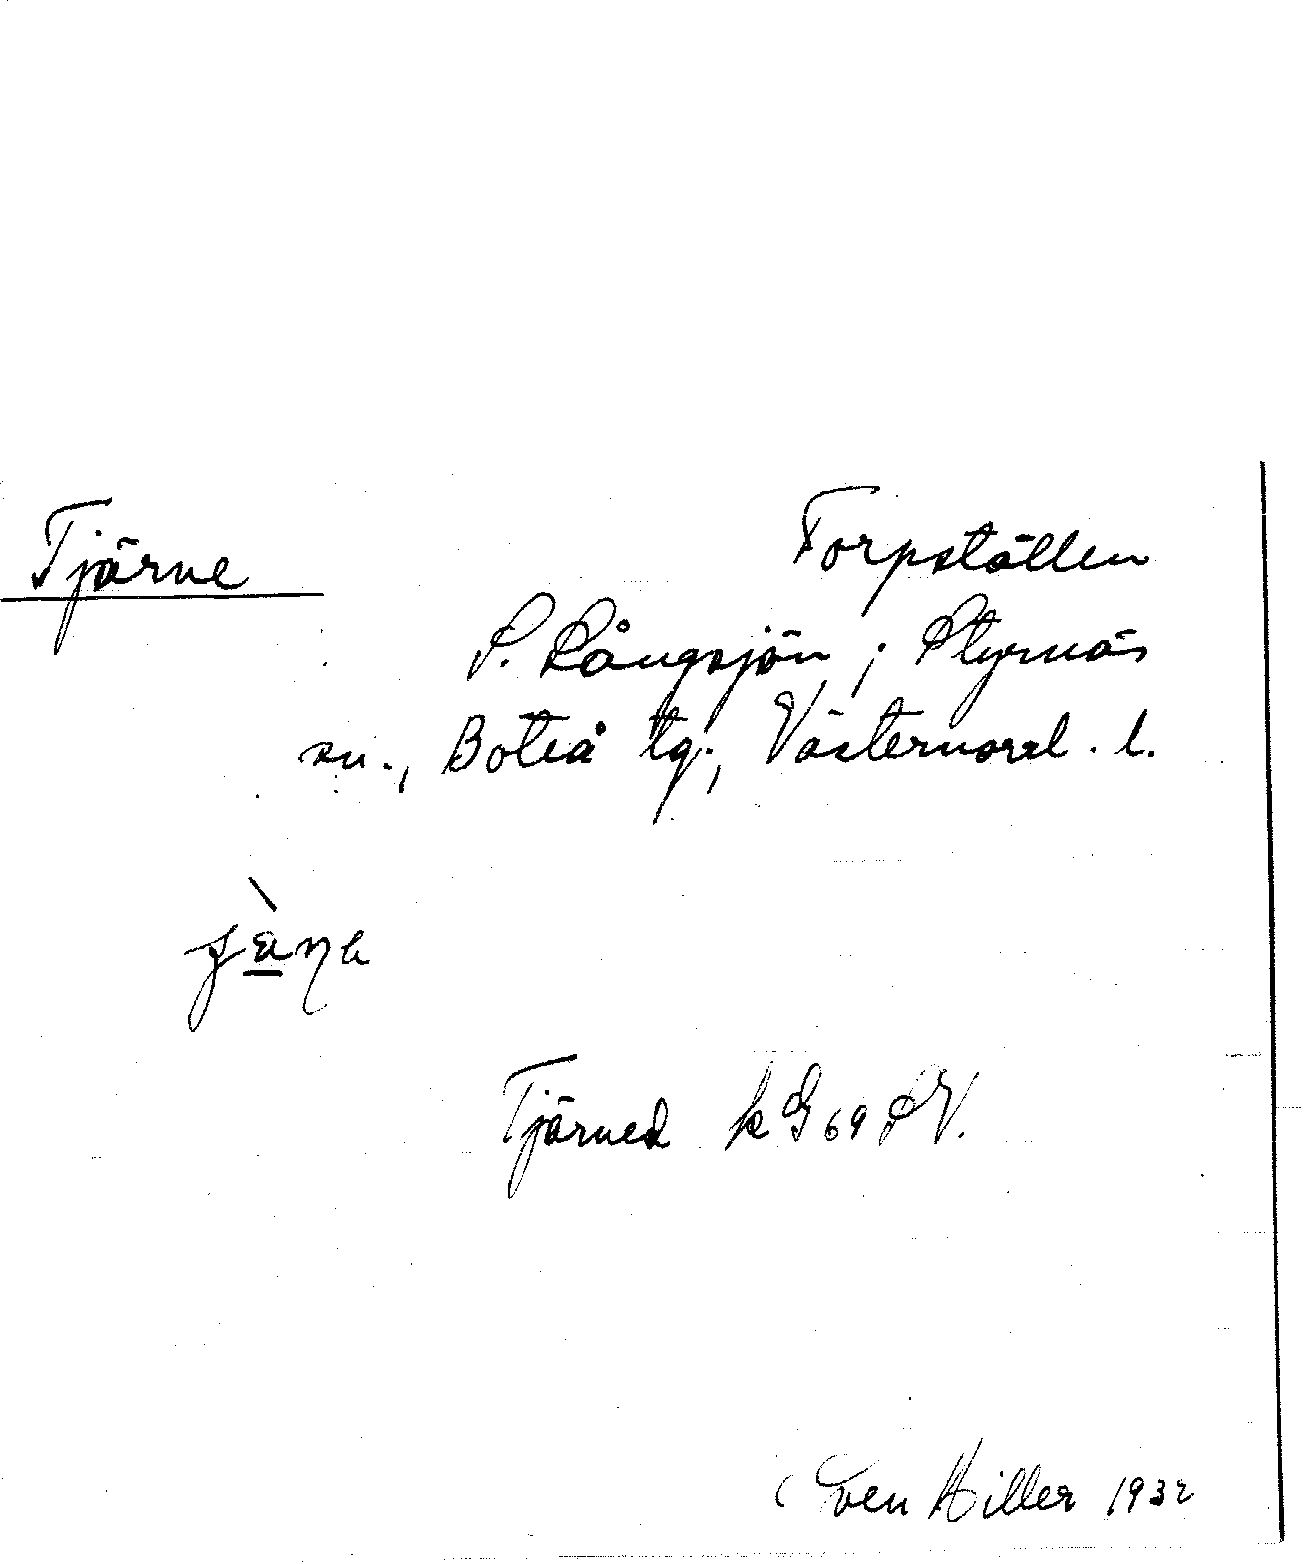 Tjärne
Torpställen
S. Långsjön, Styrnäs
sn., Boteå tg., Västernorrl. l.
Tjärned k G 69 SV.
Sven Hiller 1932